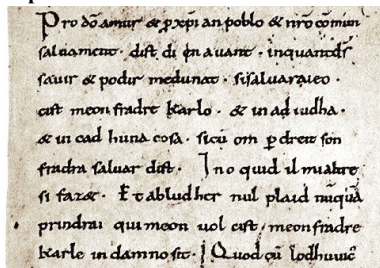 Pro dō amur & p xp̄ian poblo & nr̄o cōmun
saluament. dist di en auant. inquantd̄s
sauir & podir medunat. sisaluaraieo.
cist meon fradre Karlo. & in ad iudha.
& in cad huna cosa. sicū om p dreit son
fradra saluar dist. Ino quid il mialtre
si faz&. Et abludher nul plaid nūquā
prindrai qui meon uol cist. meonfradre
Karle in damno sit. Quod cū lodhuuic